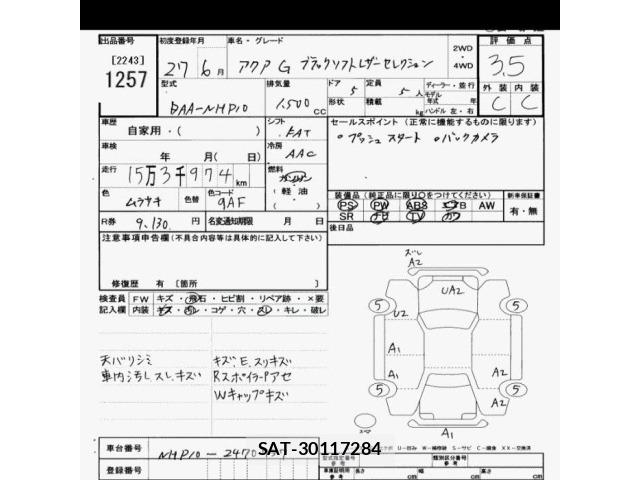 出品番号 初度登録年月 車名・グレード 2WD 4WD 評価点
[2243]
1257 27 6月 アクア G ブラックソフトレザーセレクション 3.5
型式 排気量 ドア 定員 ディーラー・並行 外装 内装
DAA-NHP10 1,500 cc 5 5人 モデル年式 年式 C C
形状 積載 kg ハンドル 左・右
車歴 シフト セールスポイント (正常に機能するものに限ります)
自家用・( ) FAT ○プッシュスタート ○バックカメラ
車検 冷房
年 月( 日) AAC
走行 燃料
15万3千974km ガソリン
(軽油)
色 色替 色コード 装備品 (純正品に限り○をつけてください) 新車保証書
ムラサキ 9AF PS PW ABS エアB AW 有・無
SR ナビ TV カワ
R券 9,130円 名変通知期限 月 日 後日品
注意事項申告欄(不具合内容等は具体的に記入して下さい)
修復歴 有 [箇所 ]
検査員 FW キズ・飛石・ヒビ割・リペア跡・×要
記入欄 内装 キズ・汚レ・コゲ・穴・スレ・キレ・破レ
天バリシミ キズ、E、スリキズ
車内汚し、スレ、キズ Rスポイラーアセ
Wキャップキズ
ズレ
A2
UA2
5 5
U2
A1
A1 A2
5 5
A2
スペア
A1
車台番号 NHP10-2470
SAT-30117284
登録番号
型式指定番号 類別区分番号
参考 参考
車庫証明用 長さ cm 幅 cm 高さ cm
参考